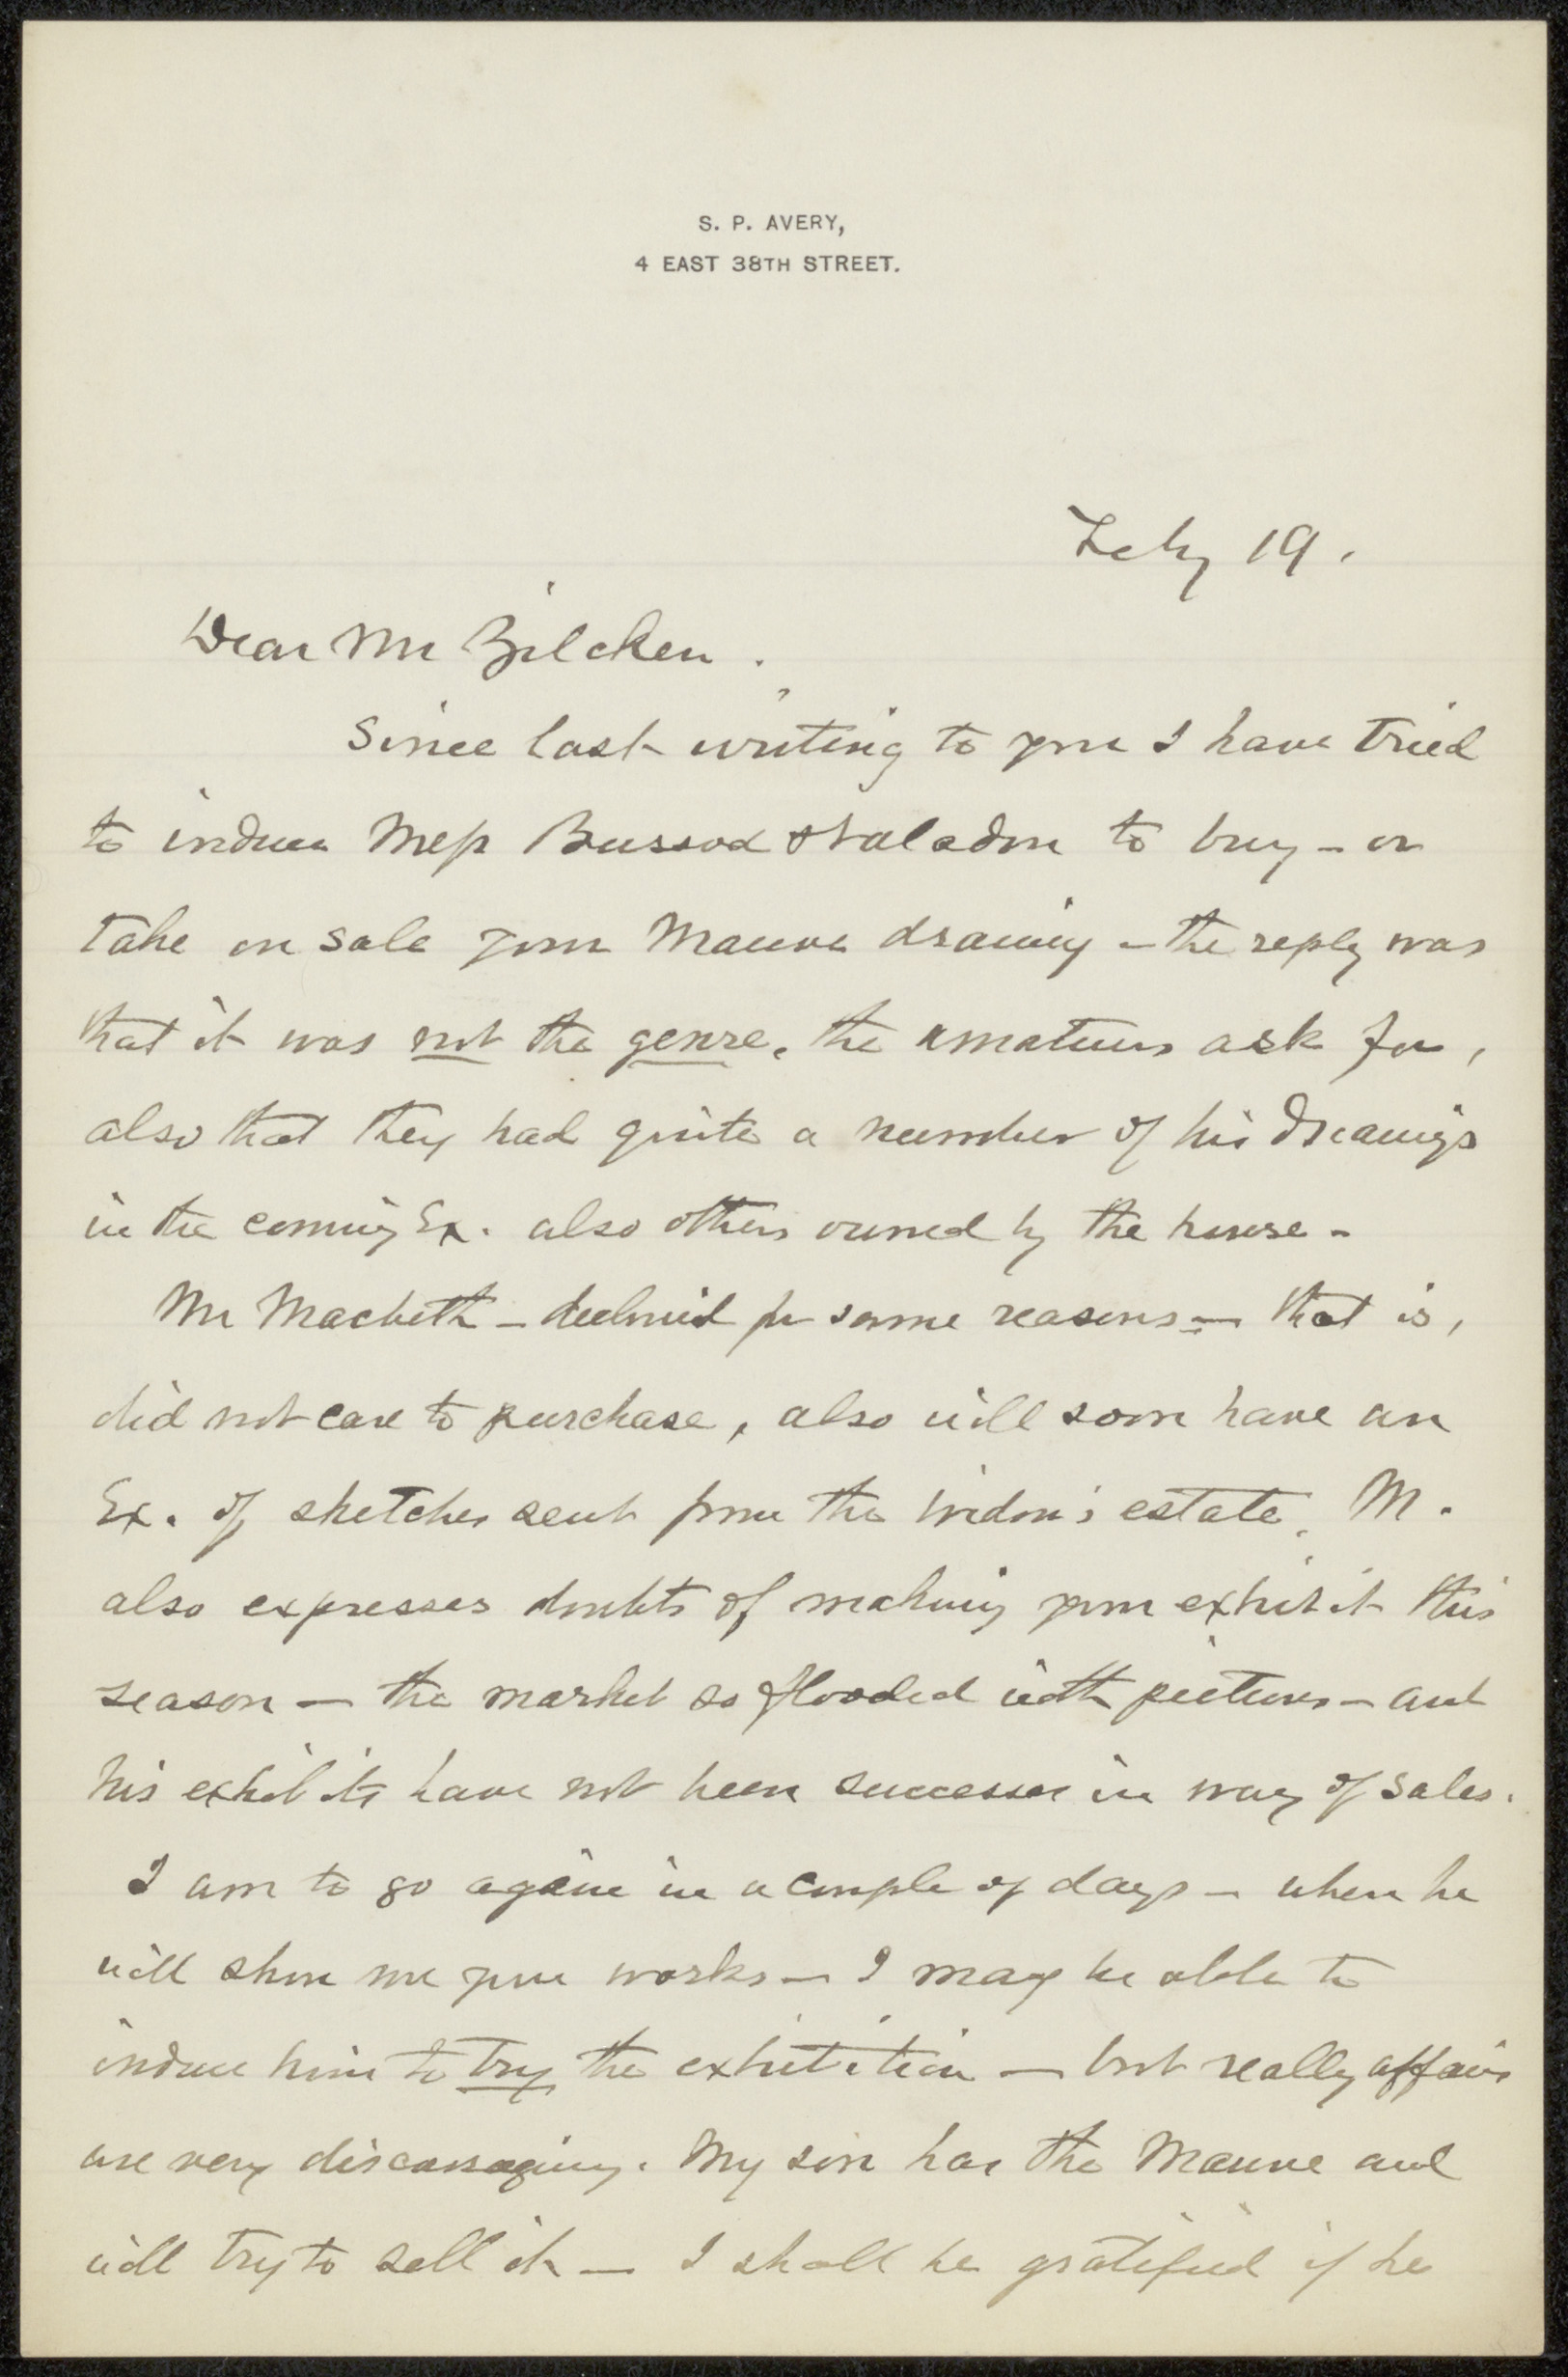 S. P. AVERY,
4 EAST 38TH STREET.
Feby 19.
Dear Mr Zilcken.
Since last writing to you I have tried
to induce Mess Bussod & Valadon to buy - or
take on sale your Mauve drawing - the reply was
that it was not the genre, the amateurs ask for,
also that they had quite a number of his drawings
in the coming Ex. also others owned by the house -
Mr Macbeth - declined for same reasons - that is,
did not care to purchase, also will soon have an
Ex. of sketches sent from the widow's estate. M.
also expresses doubts of making your exhibit this
season - the market so flooded with pictures - and
his exhibits have not been successes in way of sales.
I am to go again in a couple of days - when he
will show me your works - I may be able to
induce him to try the exhibition - but really affairs
are very discouraging. My son has the Mauve and
will try to sell it - I shall be gratified if he